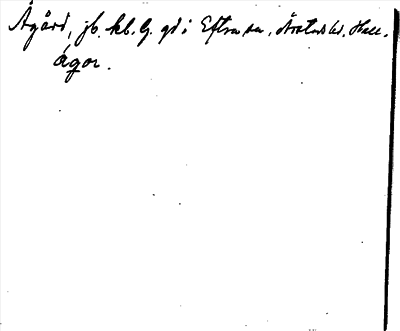 Ågård, jb. kb. G. gd i Eftra sn, Årstads hd. Hall.
ágor.